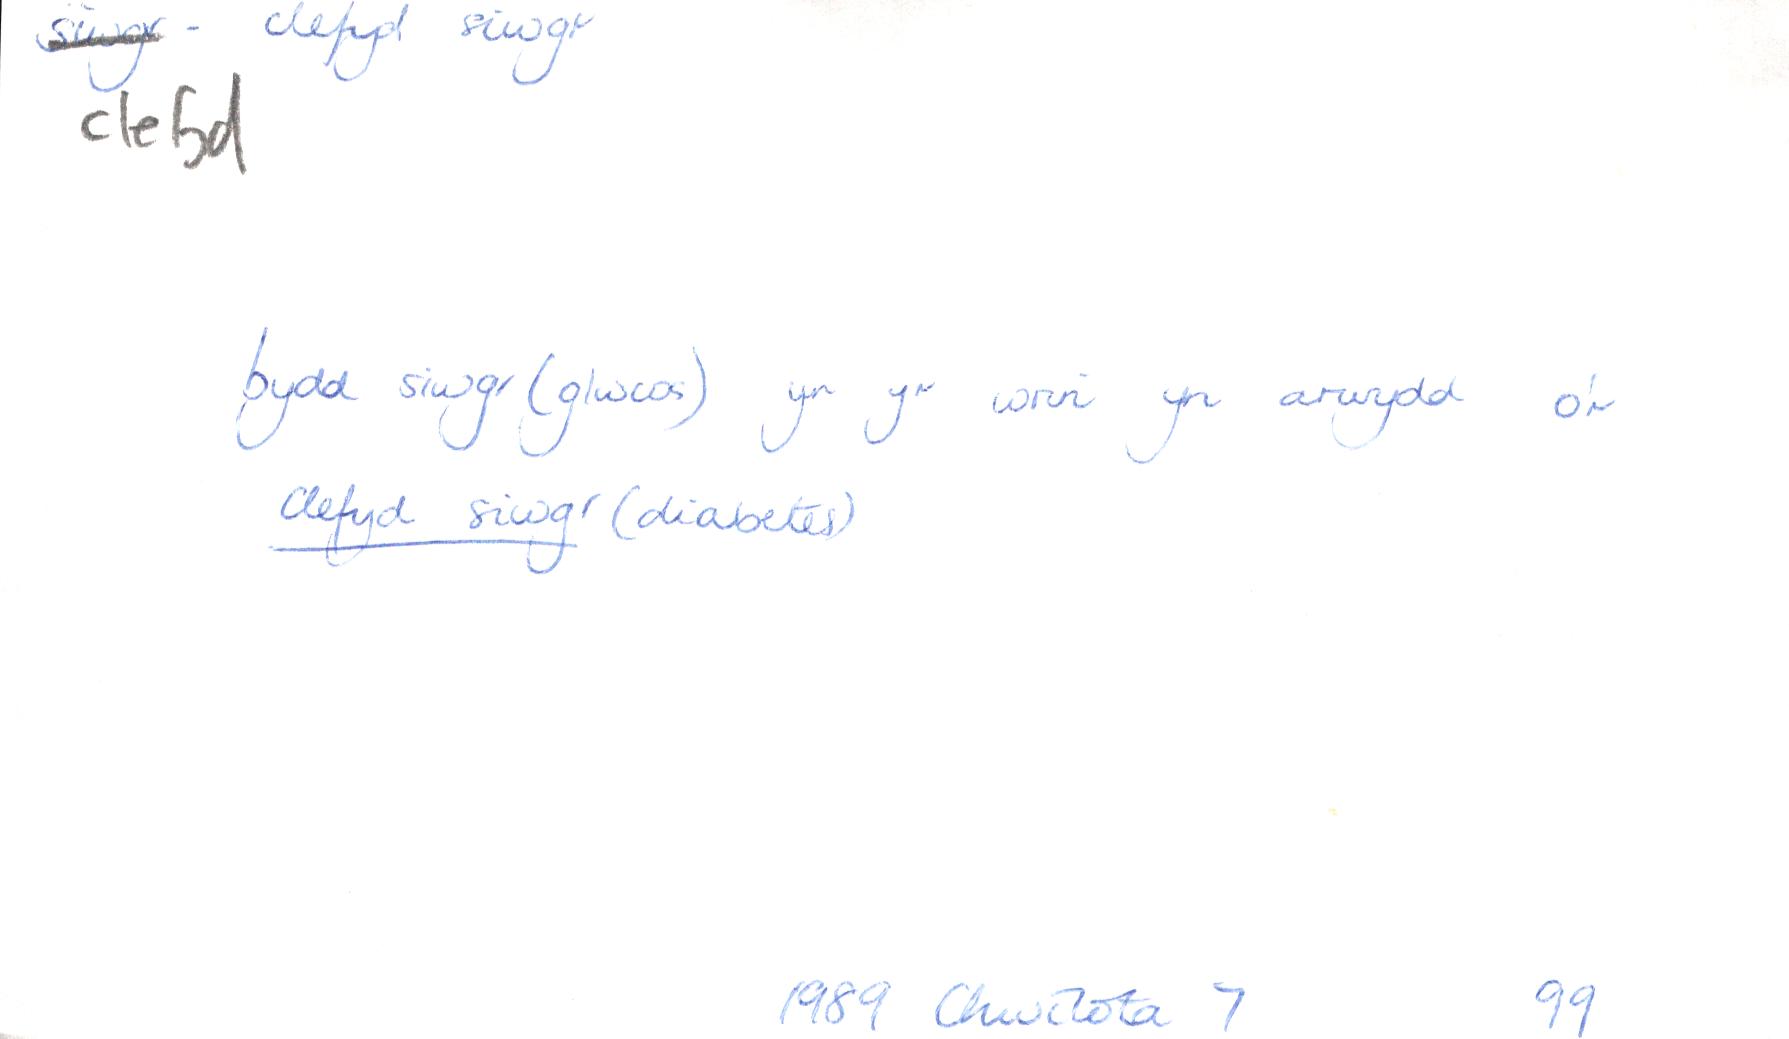 siwgr - clefyd siwgr
clefyd
bydd siwgr (glwcos) yn yr wrin yn arwydd o'r
clefyd siwgr (diabetes)
1989 Chwilota 7 99